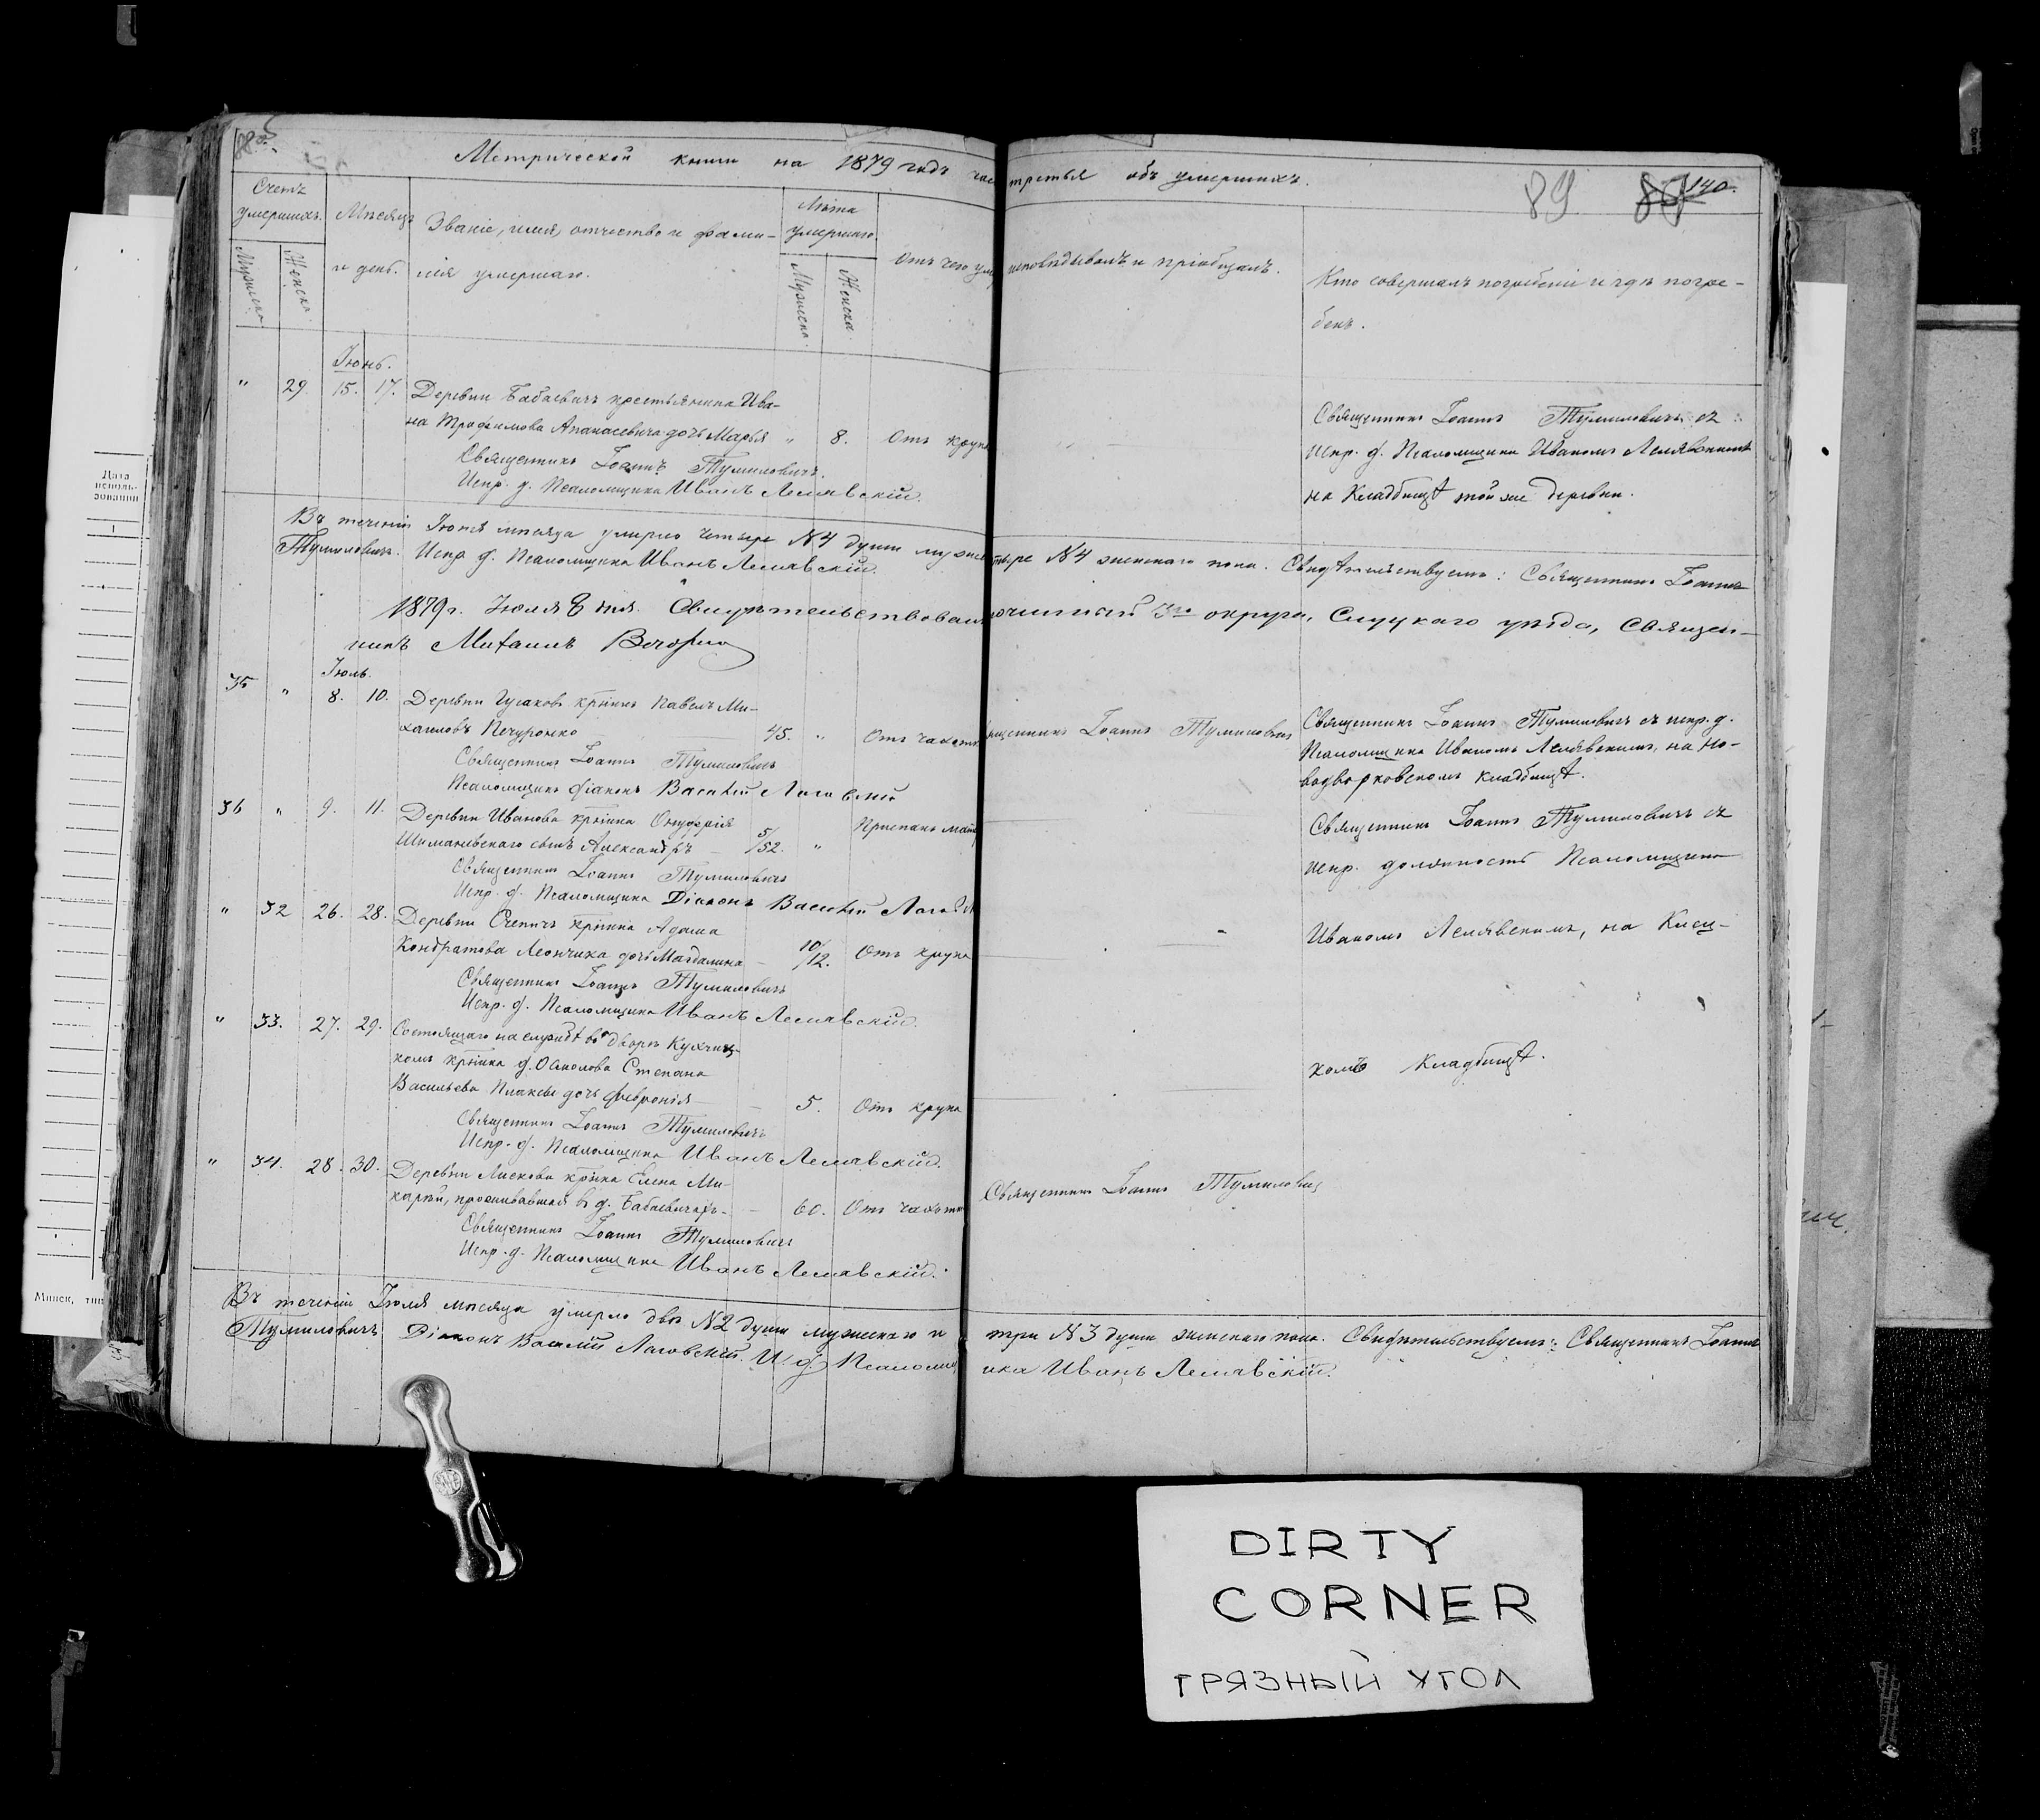 Метрической книги на 1879 годъ час третья объ умершихъ.
89
140.
Счетъ умершихъ.
Мужеска
Женска
Мѣсяцъ и день.
Званіе, имя, отчество и фами-
лія умершаго.
Лѣта умершаго.
Мужеска
Женска
Отъ чего уме
исповѣдывалъ и пріобщалъ.
Кто совершалъ погребеніе и гдѣ погре-
бенъ.
Іюнь.
" 29 15. 17. Деревни Бабаевичъ крестьянина Ива-
на Трофимова Апанасевича дочь Марья " 8. Отъ крупа
Священникъ Іоаннъ Тумиловичъ.
Испр. д. Псаломщика Иванъ Лелявскій.
Священникъ Іоаннъ Тумиловичъ съ
испр. д. Псаломщика Иваномъ Лелявскимъ
на Кладбищѣ той же деревни.
Въ теченіи Іюня мѣсяца умерло четыре №4 души мужес тыре №4 женскаго пола. Свидѣтельствуемъ: Священникъ Іоаннъ
Тумиловичъ. Испр. д. Псаломщика Иванъ Лелявскій.
1879 г. Іюля 8 дня. Свидѣтельствовалъ очинный 3го округа, Слуцкаго уѣзда, Священ-
никъ Михаилъ
Іюль.
35 " 8. 10. Деревни Гусаковъ кр҃нинъ Павелъ Ми-
хайловъ Печуронко 45. " Отъ чахотк
Священникъ Іоаннъ Тумиловичъ
Псаломщикъ діаконъ Василій Лаговскій
щенникъ Іоаннъ Тумиловичъ
Священникъ Іоаннъ Тумиловичъ съ испр. д.
Псаломщика Иваномъ Лелявскимъ, на Но-
водворковскомъ кладбищѣ.
36 " 9. 11. Деревни Иванова кр҃нина Онуфрія
Шиманевскаго сынъ Александръ 5/52. "
Священникъ Іоаннъ Тумиловичъ
Испр. д. Псаломщика Діаконъ Василій Лагов
Священникъ Іоаннъ Тумиловичъ съ
испр. должность Псаломщика
" 32 26. 28. Деревни кр҃нина Адама
Кондратова Леончика дочь Магдалина 10/12. Отъ крупа
Священникъ Іоаннъ Тумиловичъ
Испр. д. Псаломщика Иванъ Лелявскій.
Иваномъ Лелявскимъ, на Клец-
" 33. 27. 29. Состоящаго на службѣ во дворѣ Кухчиц-
комъ кр҃нина д. Осмолова Степана
Васильева Плаксы дочь Февронія 5. Отъ крупа
Священникъ Іоаннъ Тумиловичъ
Испр. д. Псаломщика Иванъ Лелявскій.
комъ Кладбищѣ.
" 34. 28. 30. Деревни Лискова кр҃нка Елена Ми-
проживавшая въ д. Бабаевичахъ 60. Отъ чахотк
Священникъ Іоаннъ Тумиловичъ
Испр. д. Псаломщика Иванъ Лелявскій.
Священникъ Іоаннъ Тумилович
Въ теченіи Іюля мѣсяца умерло двѣ №2 души мужскаго и три №3 души женскаго пола. Свидѣтельствуемъ: Священникъ Іоаннъ
Тумиловичъ Діаконъ Василій Лаговскій. И. д. Псаломщ ика Иванъ Лелявскій.
Дата
исполь-
зования
Минск, тип
DIRTY
CORNER
ГРЯЗНЫЙ УГОЛ